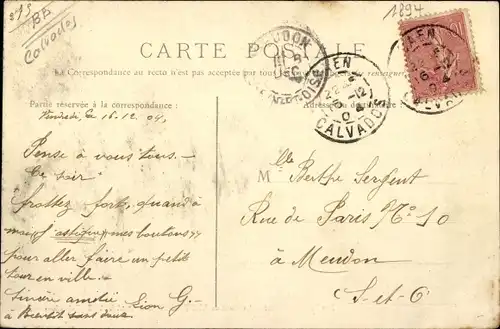 1894
CARTE POSTALE
La Correspondance au recto n'est pas acceptée par tous
Partie réservée à la correspondance :
Adresse du destinataire
CAEN
CALVADOS
CAEN
CALVADOS
Vendredi, le 16.12.04.
Pense à vous tous. —
Ce soir
frottez fort, quand à
mes boutons
pour aller faire un petit
tour en ville.
Sincère amitié Léon G—
à Bientôt sans doute
Mlle Berthe Sergent
Rue de Paris No 10
à Meudon
S-et-O